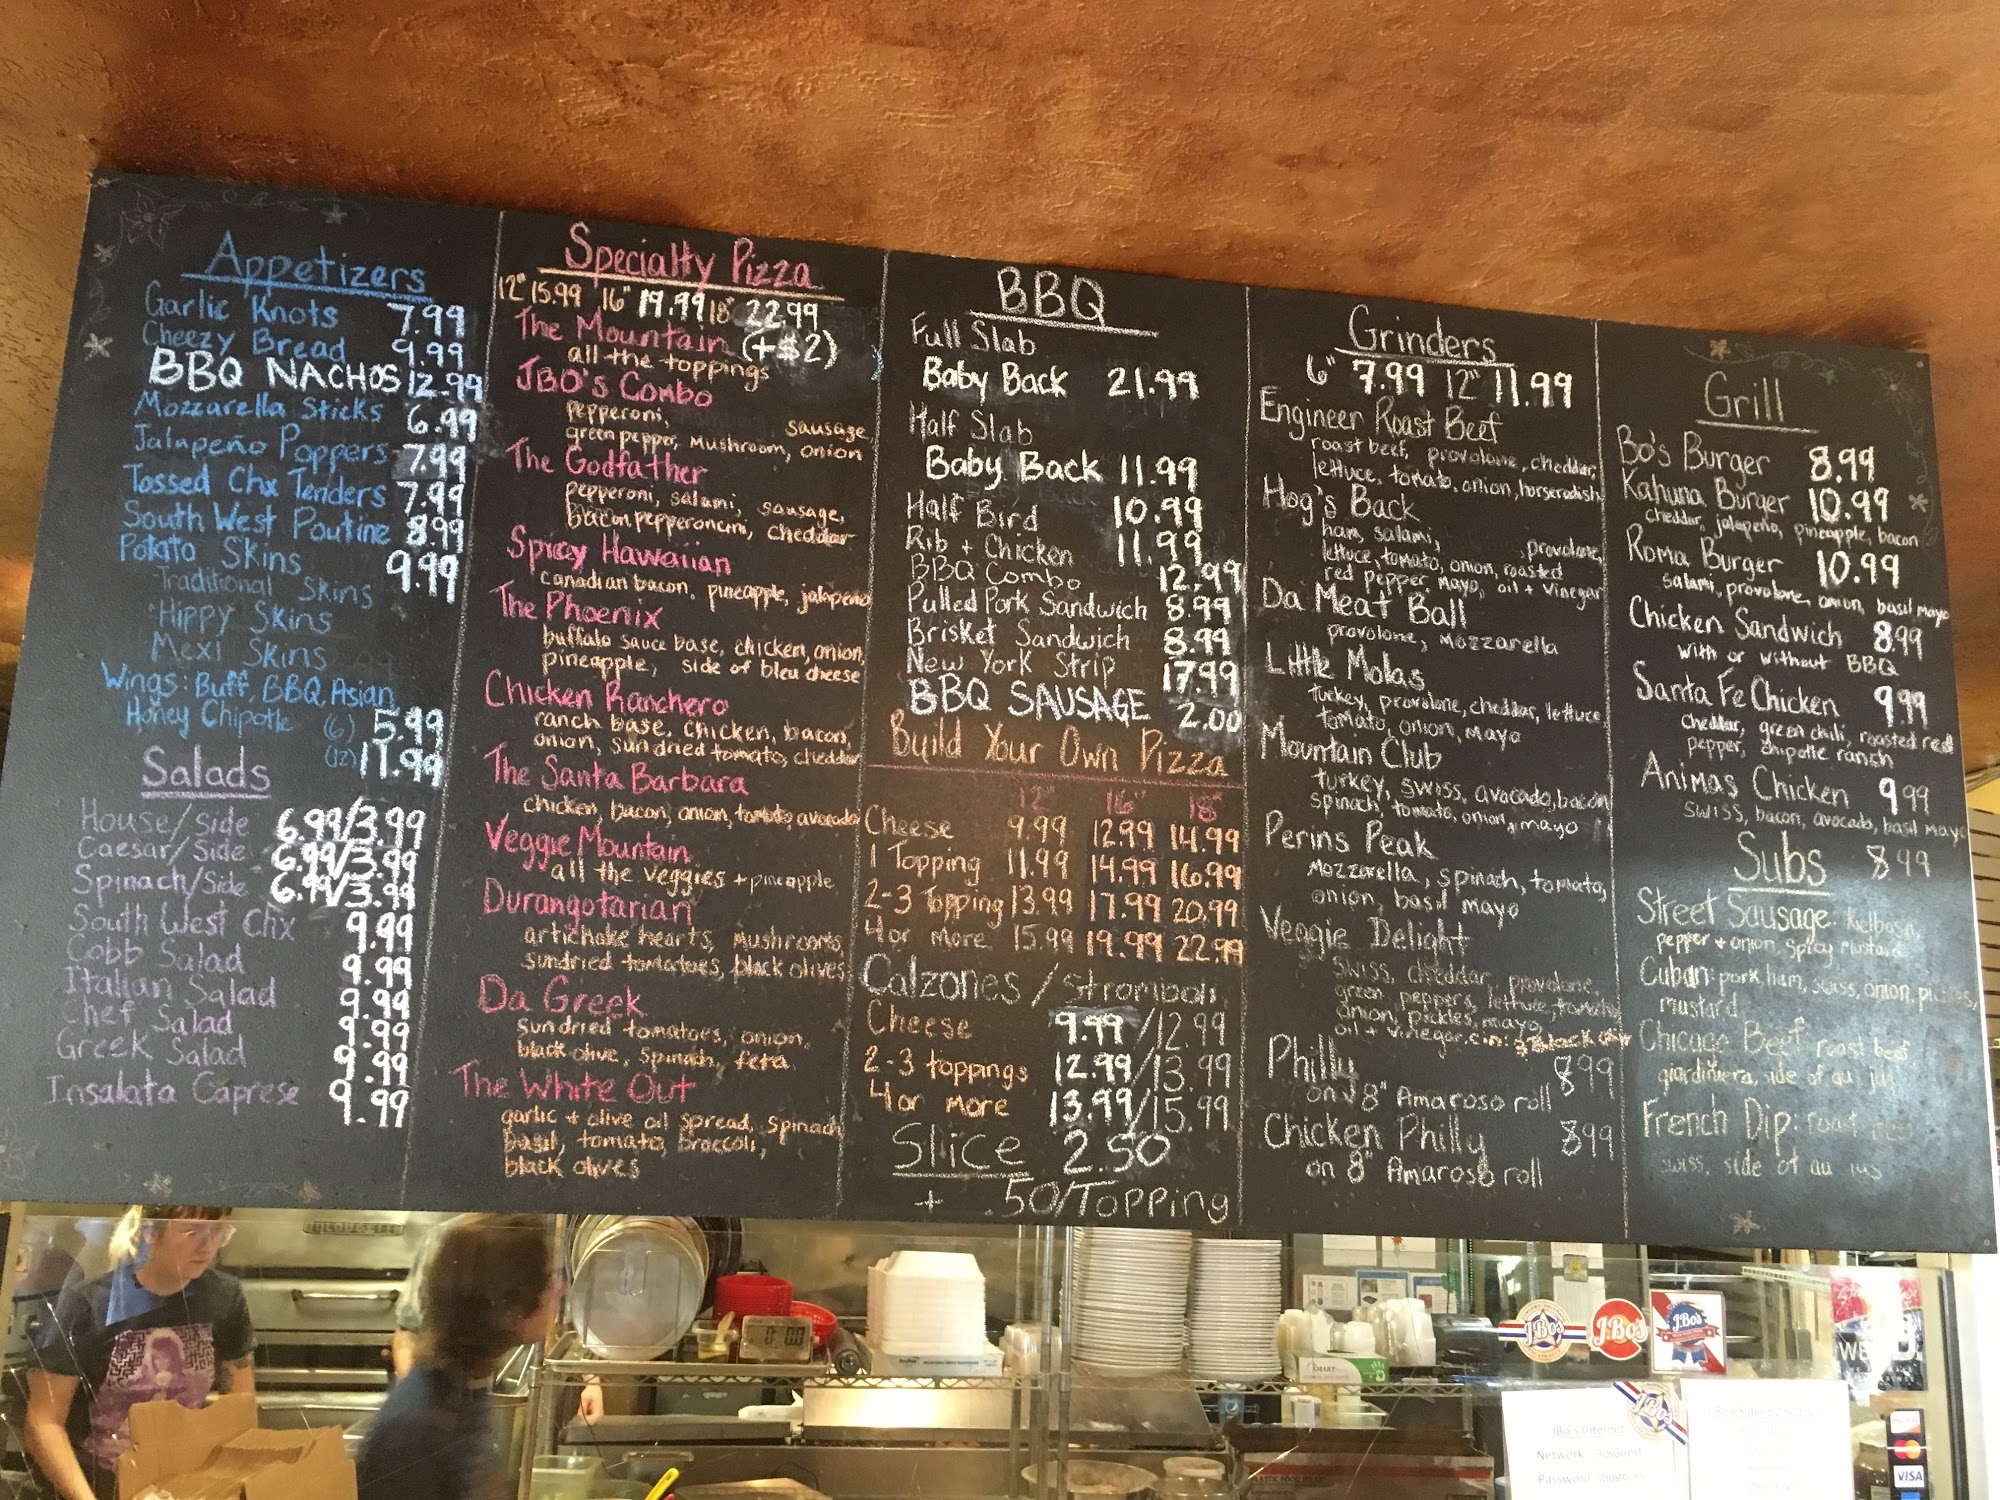 Appetizers
Garlic Knots 7.99
Cheezy Bread 9.99
BBQ NACHOS 12.99
Mozzarella Sticks 6.99
Jalapeño Poppers 7.99
Tossed Chx Tenders 7.99
South West Poutine 8.99
Potato Skins 9.99
Traditional Skins
Hippy Skins
Mexi Skins
Wings: Buff, BBQ, Asian,
Honey Chipotle (6) 5.99
(12) 11.99
Salads
House/Side 6.99/3.99
Caesar/Side 6.99/3.99
Spinach/Side 6.99/3.99
South West Chx 9.99
Cobb Salad 9.99
Italian Salad 9.99
Chef Salad 9.99
Greek Salad 9.99
Insalata Caprese 9.99
Specialty Pizza
12" 15.99 16" 19.99 18" 22.99
The Mountain (+$2)
all the toppings
JBO's Combo
pepperoni, sausage,
green pepper, mushroom, onion
The Godfather
pepperoni, salami, sausage,
bacon, pepperoncini, cheddar
Spicy Hawaiian
Canadian bacon, pineapple, jalapeno
The Phoenix
buffalo sauce base, chicken, onion,
pineapple, side of bleu cheese
Chicken Ranchero
ranch base, chicken, bacon,
onion, sundried tomato, cheddar
The Santa Barbara
chicken, bacon, onion, tomato, avocado
Veggie Mountain
all the veggies + pineapple
Durangotarian
artichoke hearts, mushrooms,
sundried tomatoes, black olives
Da Greek
sundried tomatoes, onion,
black olive, spinach, feta
The White Out
garlic + olive oil spread, spinach
basil, tomato, broccoli,
black olives
BBQ
Full Slab
Baby Back 21.99
Half Slab
Baby Back 11.99
Half Bird 10.99
Rib + Chicken 11.99
BBQ Combo 12.99
Pulled Pork Sandwich 8.99
Brisket Sandwich 8.99
New York Strip 17.99
BBQ SAUSAGE 2.00
Build Your Own Pizza
12" 16" 18"
Cheese 9.99 12.99 14.99
1 Topping 11.99 14.99 16.99
2-3 Topping 13.99 17.99 20.99
4 or more 15.99 19.99 22.99
Calzones / Stromboli
Cheese 9.99/12.99
2-3 toppings 12.99/13.99
4 or more 13.99/15.99
Slice 2.50
+ .50/Topping
Grinders
6" 7.99 12" 11.99
Engineer Roast Beef
roast beef, provolone, cheddar,
lettuce, tomato, onion, horseradish
Hog's Back
ham, salami, provolone,
lettuce, tomato, onion, roasted
red pepper, mayo, oil + vinegar
Da Meat Ball
provolone, mozzarella
Little Molas
turkey, provolone, cheddar, lettuce,
tomato, onion, mayo
Mountain Club
turkey, swiss, avocado, bacon
spinach, tomato, onion, mayo
Perins Peak
mozzarella, spinach, tomato,
onion, basil mayo
Veggie Delight
swiss, cheddar, provolone,
green peppers, lettuce, tomato,
onion, pickles, mayo,
oil + vinegar
Philly 8.99
on 8" Amaroso roll
Chicken Philly 8.99
on 8" Amaroso roll
Grill
Bo's Burger 8.99
Kahuna Burger 10.99
cheddar, jalapeño, pineapple, bacon
Roma Burger 10.99
salami, provolone, onion, basil mayo
Chicken Sandwich 8.99
with or without BBQ
Santa Fe Chicken 9.99
cheddar, green chili, roasted red
pepper, chipotle ranch
Animas Chicken 9.99
swiss, bacon, avocado, basil mayo
Subs 8.99
Street Sausage: Kelbasa,
pepper + onion, spicy mustard
Cuban: pork, ham, swiss, onion, pickles,
mustard
Chicago Beef roast beef
giardiniera, side of au jus
French Dip: roast
swiss, side of au jus
J.Bo's
J.Bo's
J.Bo's
JBo's Internet
Network
Password
VISA